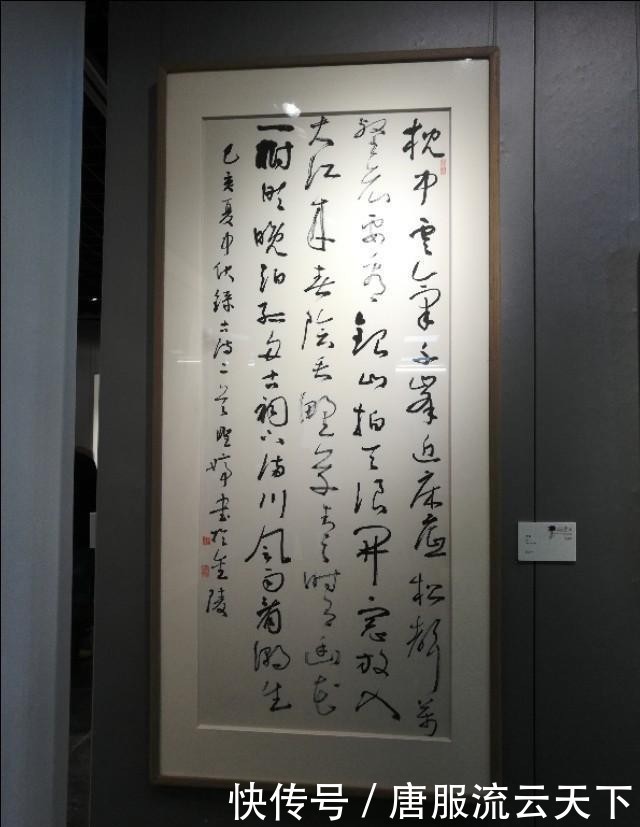 枕中雲氣千峯近床底松聲萬
壑哀要看銀山拍天浪開窗放入
大江來春陰垂野草青青時有幽花
一樹明晚泊孤舟古祠下滿川風雨看潮生
己亥夏中伏錄古詩二首婷書於金陵
快传号/唐服流云天下